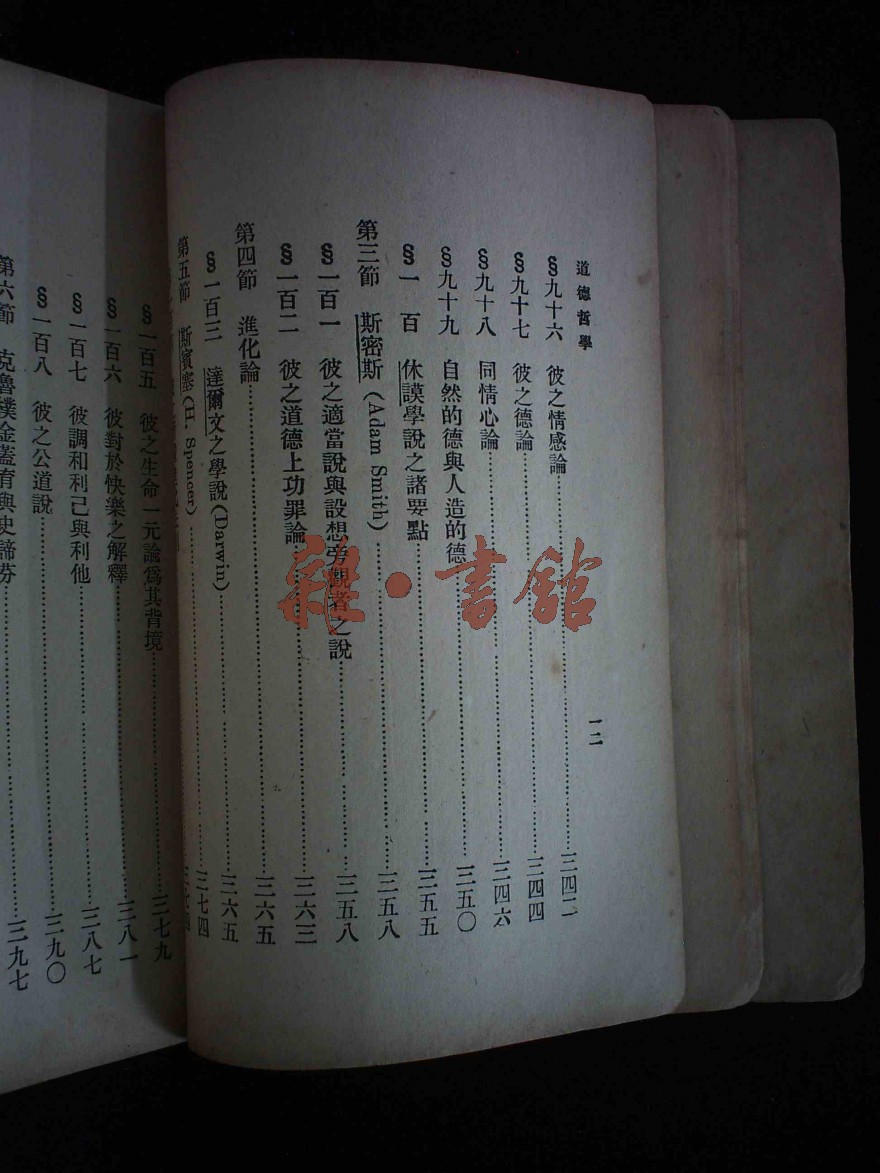 道德哲學
§九十六 彼之情感論……三四二
§九十七 彼之德論……三四四
§九十八 同情心論……三四六
§九十九 自然的德與人造的德……三五〇
§一 百 休謨學說之諸要點……三五五
第三節 斯密斯(Adam Smith)……三五八
§一百一 彼之適當說與設想旁觀者之說……三五八
§一百二 彼之道德上功罪論……三六三
第四節 進化論……三六五
§一百三 達爾文之學說(Darwin)……三六五
第五節 斯賓塞(H. Spencer)……三七四
一二
§一百五 彼之生命一元論爲其背境……三七九
§一百六 彼對於快樂之解釋……三八一
§一百七 彼調和利己與利他……三八七
§一百八 彼之公道說……三九〇
第六節 克魯樸金蓋育與史諦芬……三九七
雜·書館